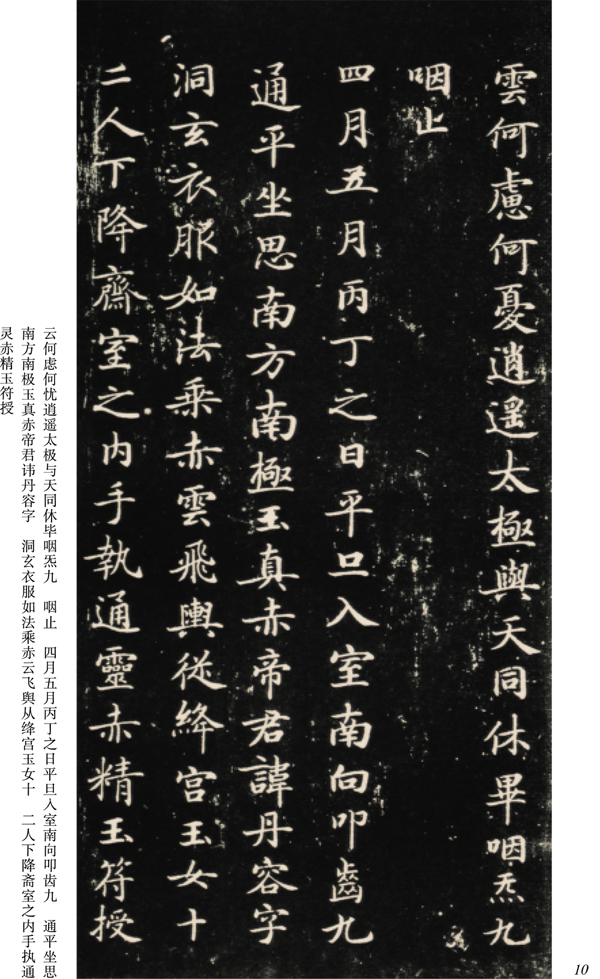 雲何慮何憂逍遥太極與天同休畢咽炁九
咽止
四月五月丙丁之日平旦入室南向叩齒九
通平坐思南方南極玉真赤帝君諱丹容字
洞玄衣服如法乘赤雲飛輿従絳宫玉女十
二人下降齋室之内手執通靈赤精玉符授
云何虑何忧逍遥太极与天同休毕咽炁九　咽止　四月五月丙丁之日平旦入室南向叩齿九　通平坐思
南方南极玉真赤帝君讳丹容字　洞玄衣服如法乘赤云飞舆从绛宫玉女十　二人下降斋室之内手执通
灵赤精玉符授
10